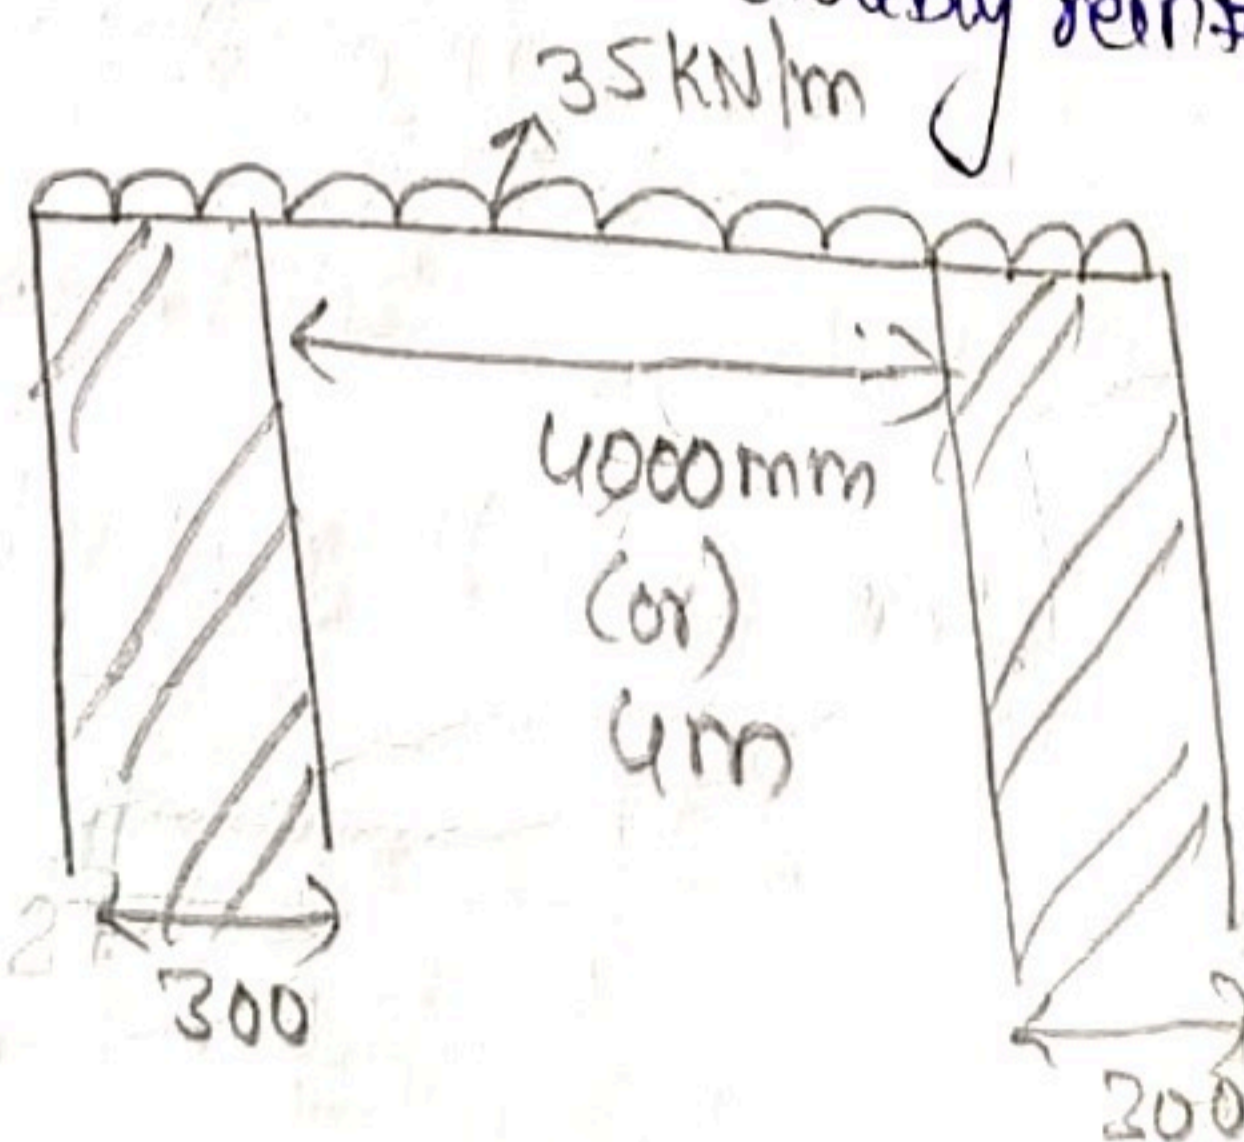 35KN/m
4000mm
(or)
4m
300
300